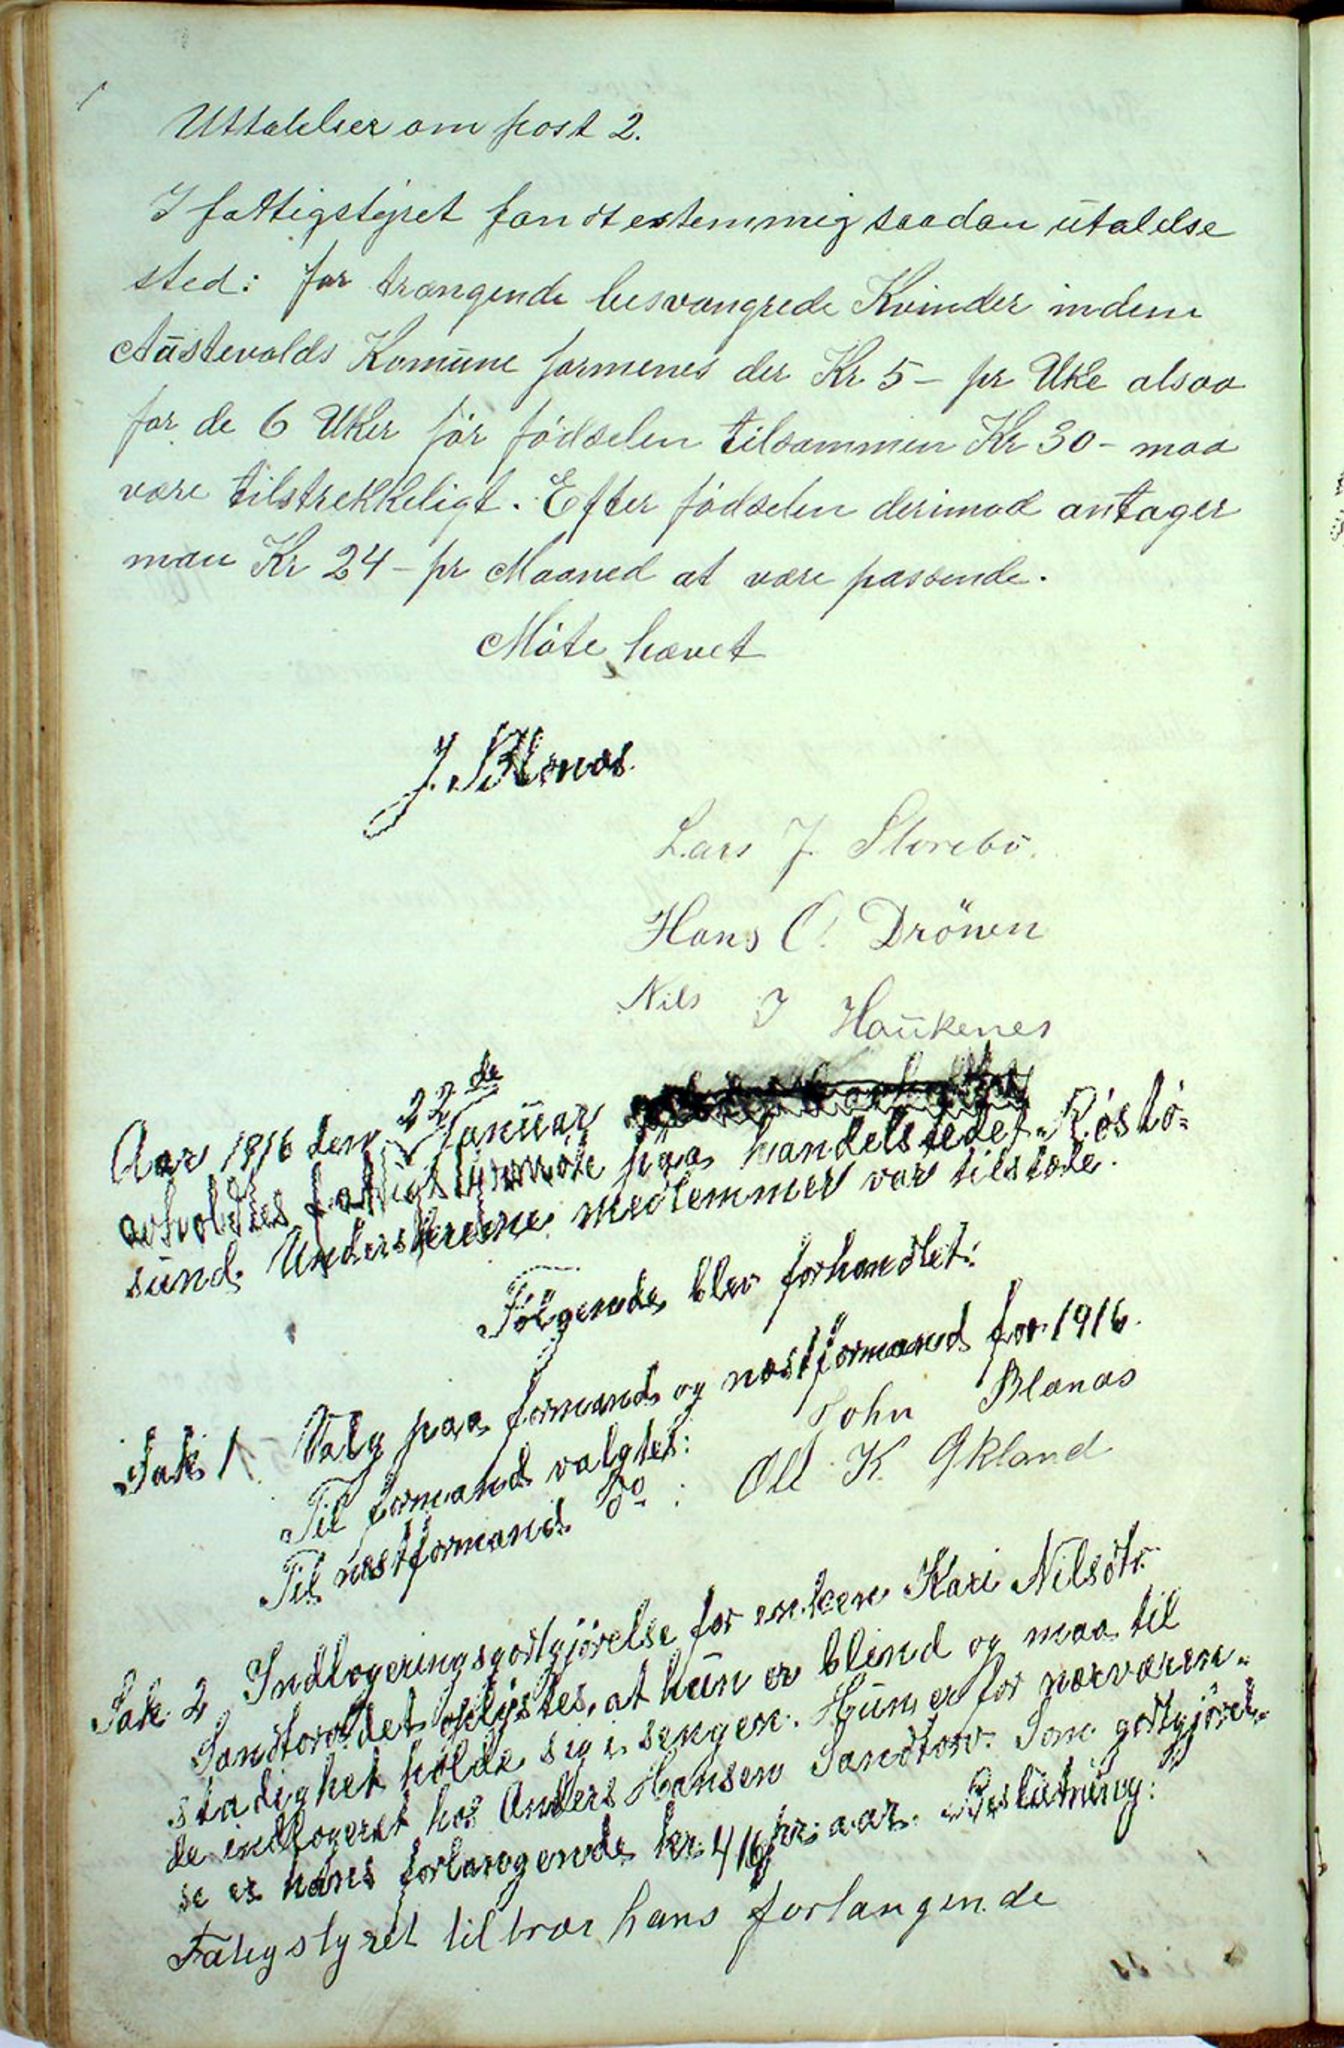 Uttalelser om post 2.
I fattigstyret fandt enstemmig saadan utalelse
sted: for trængende besvangrede Kvinder inden
Austevolds Komune formenes der Kr 5 - pr Uke alsaa
for de 6 Uker för födselen tilsammen Kr 30 - maa
være tilstrekkeligt. Efter födselen derimod antager
man Kr 24 - pr Maaned at være passende.
Möte hævet
J. Blænæs
Lars J. Storebö.
Hans O. Drönen
Nils J Haukenes
Aar 1916 den 22de januar
avholdtes fattigstyremöte paa handelstedet Röstö=
sund. Underskrevne medlemmer var tilstæde.
Fölgende blev forhandlet:
Sak 1. Valg paa formand og næstformand for 1916.
Til formand valgtes: John Blænæs
Til næstformand do : Ole K. Økland
Sak 2 Indlogeringsgodtgjörelse for enken Kari Nilsdtr.
Sandtorv. det oplystes, at hun er blind og maa til
stadighet holde sig i sengen. Hun er for nærværen-
de indlogeret hos Anders Hansen Sandtorv. Som godtgjörel-
se er hans forlangende kr. 416 pr. aar. Beslutning:
Fatigstyret tiltrær hans forlangende